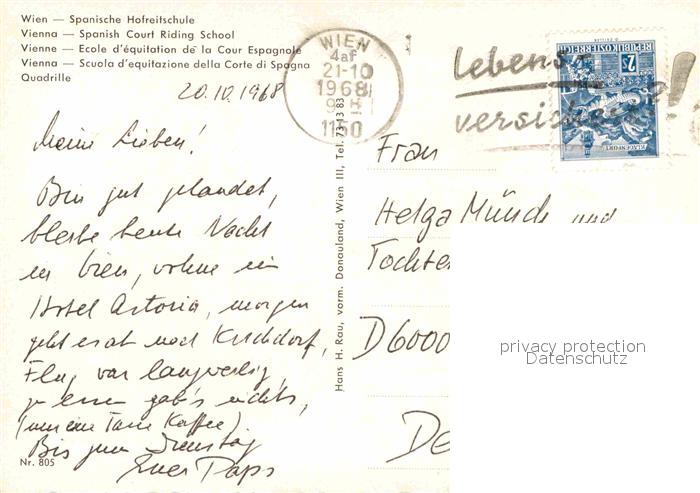 Wien — Spanische Hofreitschule
Vienna — Spanish Court Riding School
Vienne — Ecole d'équitation de la Cour Espagnole
Vienna — Scuola d'equitazione della Corte di Spagna
Quadrille
20.10.1968
WIEN
4af
21-10
1968
1150
Lebens-
versichert!
REPUBLIK ÖSTERREICH
2S
KLAGENFURT
Meine Lieben!
Bin gut gelandet,
bleibe heute Nacht
in Wien, wohne im
Hotel Astoria, morgen
geht es ab nach Kirchdorf,
Flug war langweilig,
zu essen gab's nichts,
(nur eine Tasse Kaffee).
Bis zum Dienstag
Euer Paps
Nr. 805
Hans H. Rau, vorm. Donauland, Wien III, Tel. 73 13 83
Frau
Helga Münch und
Tochter
D6000
privacy protection
Datenschutz